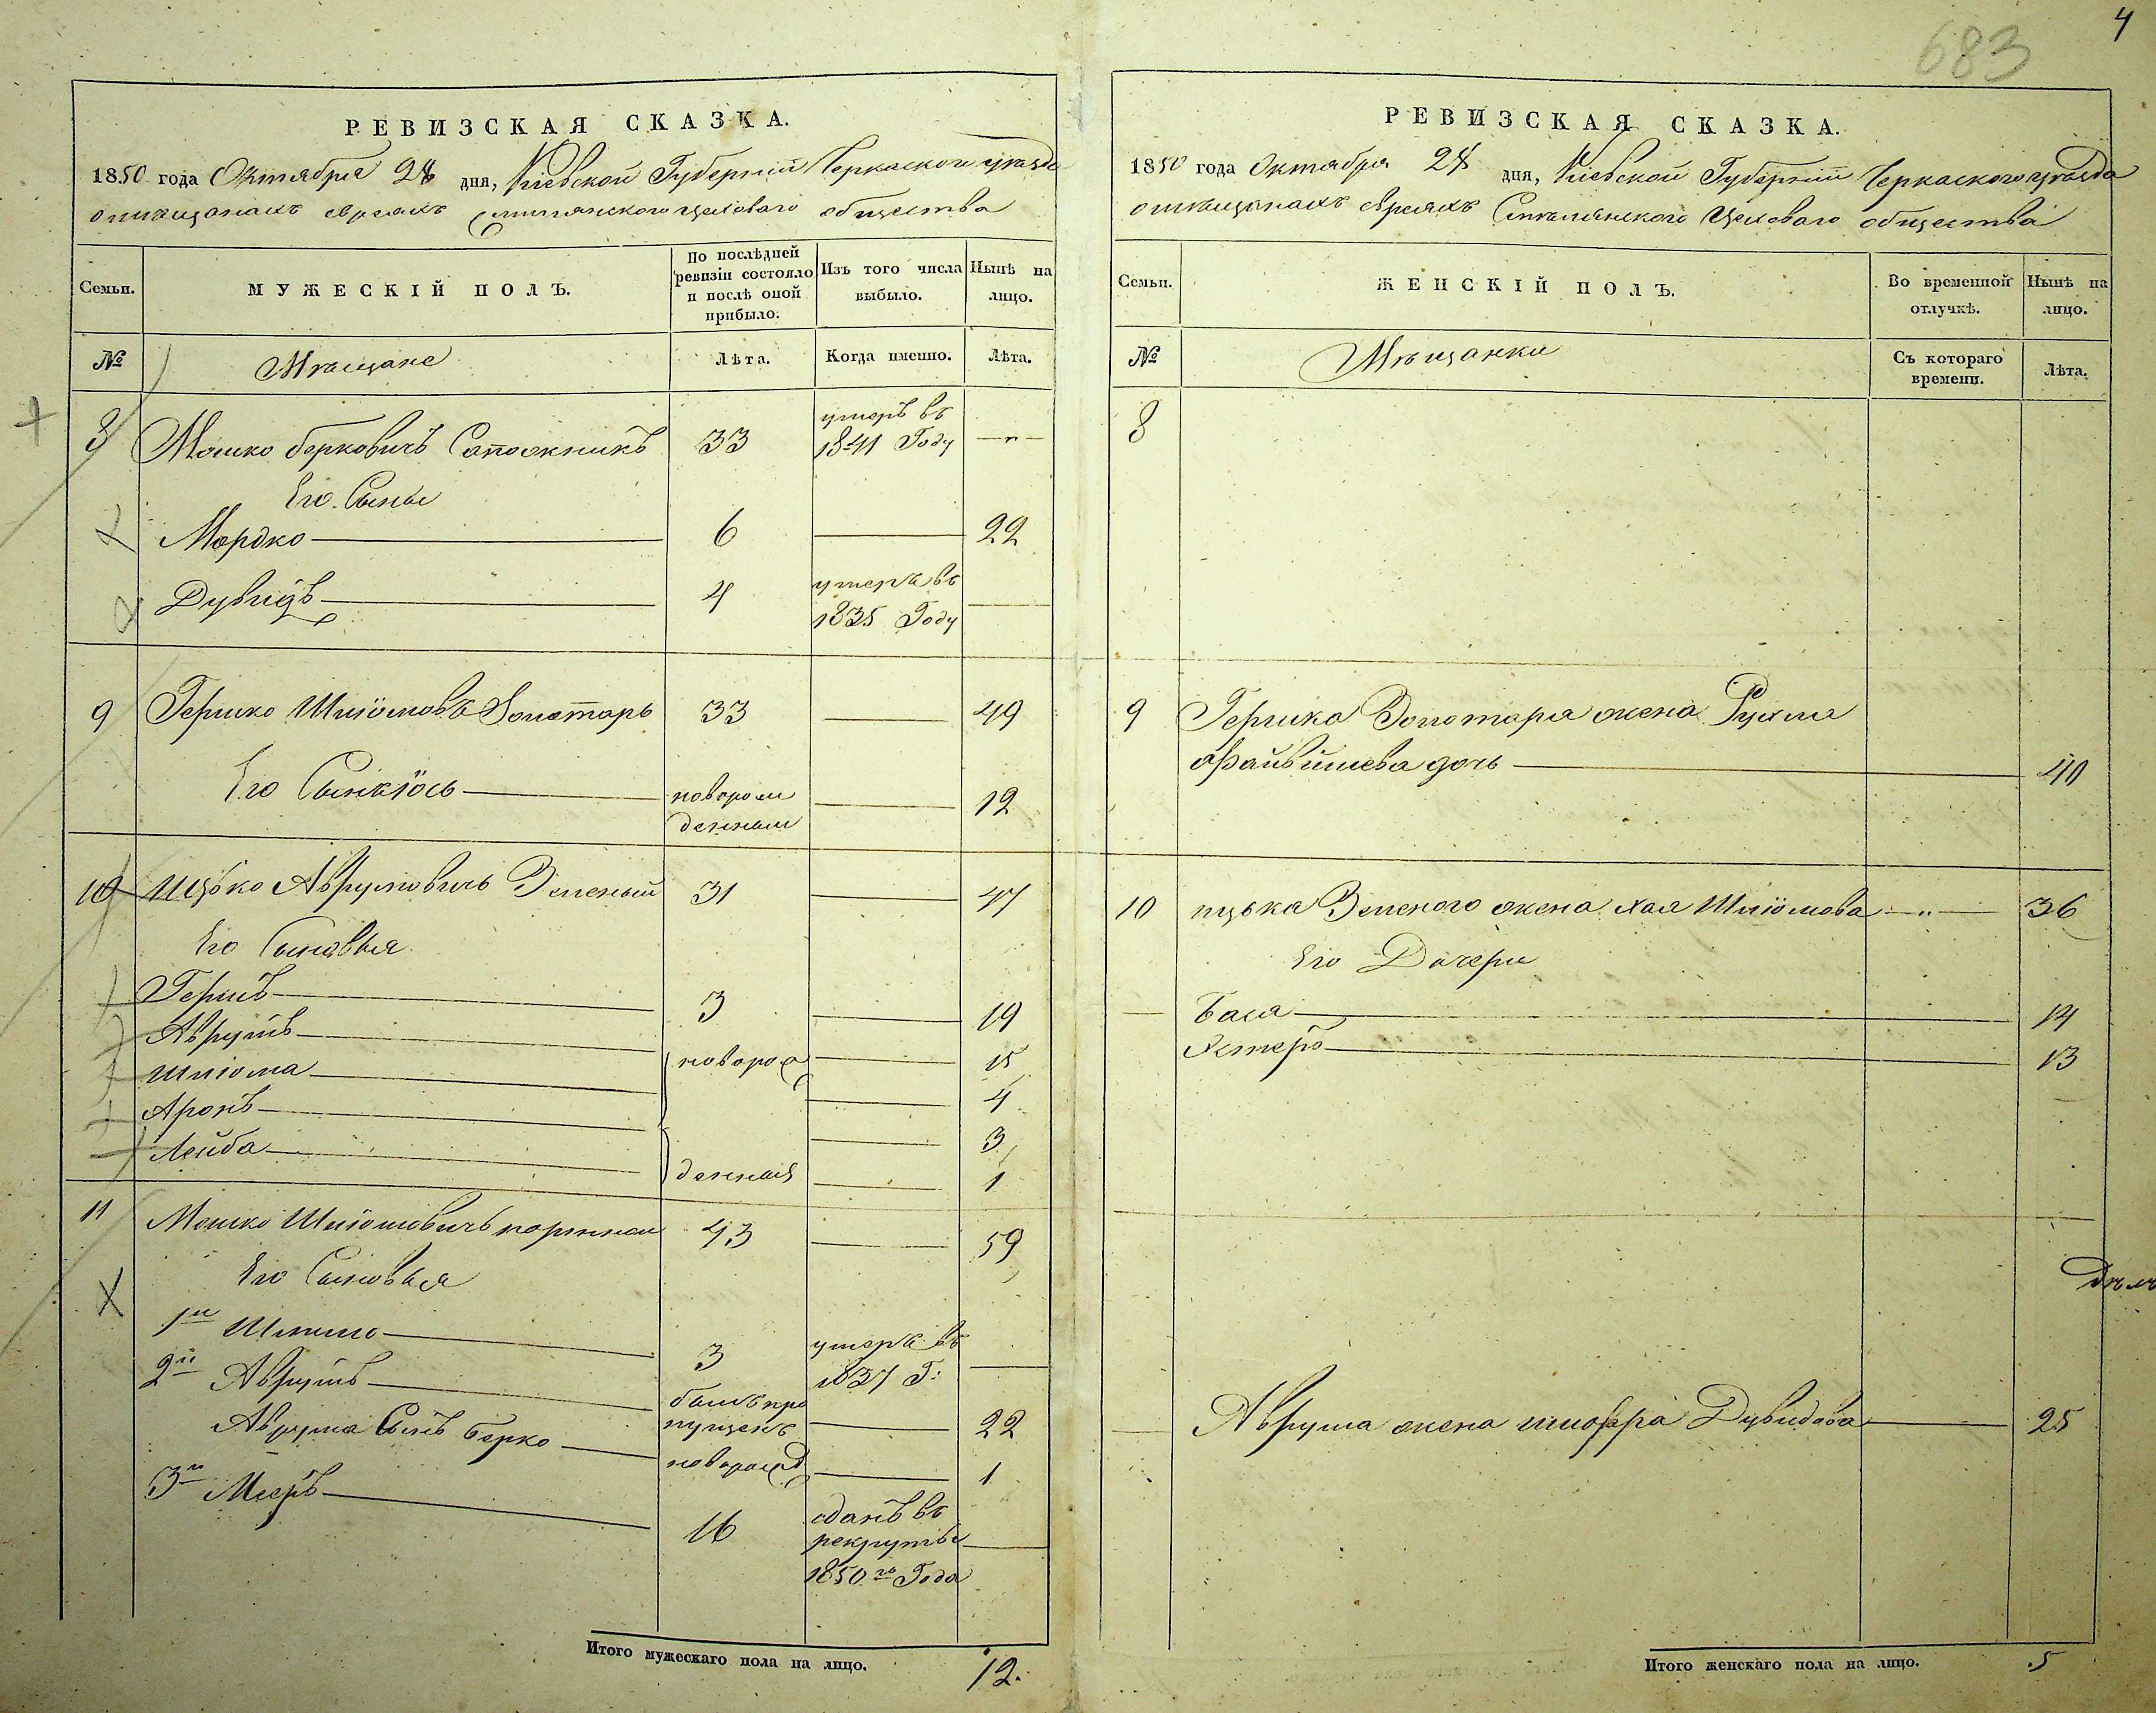 4
683
РЕВИЗСКАЯ СКАЗКА.
1850 года Октября 28 дня, Кіевской Губерніи Черкаскаго уѣзда
о мѣщанахъ евреяхъ Смѣлянского Цеховаго общества
Семьи.
МУЖЕСКІЙ ПОЛЪ.
По послѣдней ревизіи состояло и послѣ оной прибыло.
Изъ того числа выбыло.
Нынѣ на лицо.
№
Мѣщане
Лѣта.
Когда именно.
Лѣта.
8 Мошко Берковичъ Сапожникъ 33 умеръ въ 1841 Году —"—
Его Сыны
Мордко 6 22
Дувидъ 4 умеръ въ 1835 Году
9 Гершко Шліомовъ Золотарь 33 49
Его Сынъ Іось новорожденный 12
10 Ицько Аврумовичъ Зеленый 31 47
Его Сыновья
Гершъ 3 19
Аврумъ новорож 15
Шліома 4
Аронъ 3
Лейба денныя 1
11 Мошко Шліомовичъ 43 59
Его Сыновья
1й Шлимо 3 умеръ въ 1837 Г:
2й Аврумъ былъ пропущенъ 22
Аврума Сынъ Берко новорожд 1
3й Мееръ 16 сданъ въ рекруты 1850го Года
Итого мужескаго пола на лицо. 12.
РЕВИЗСКАЯ СКАЗКА.
1850 года Октября 28 дня, Кіевской Губерніи Черкаского уѣзда
о мѣщанахъ евреяхъ Смѣлянского Цеховаго общества
Семьи.
ЖЕНСКІЙ ПОЛЪ.
Во временной отлучкѣ.
Нынѣ на лицо.
№
Мѣщанки
Съ котораго времени.
Лѣта.
8
9 Гершка Золотаря жена Рухля
Файвишева дочь 40
10 Ицька Зеленого жена Хая Шліомова —"— 36
Его Дочери
Бася 14
Хстеръ 13
Аврума жена Шифра Дувидова 25
Итого женскаго пола на лицо. 5